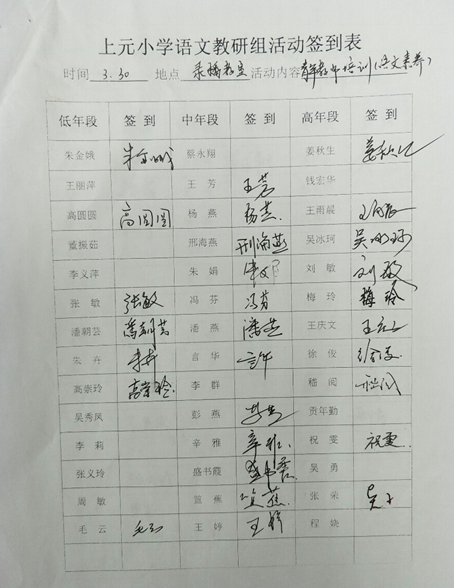 上元小学语文教研组活动签到表
时间 3.30 地点 录播教室 活动内容 青年教师培训(语文素养)
低年段 签到 中年段 签到 高年段 签到
朱金娥 朱金娥 蔡永翔 姜秋生 姜秋生
王丽萍 王芳 王芳 钱宏华
高圆圆 高圆圆 杨燕 杨燕 王雨晨 王雨晨
董振茹 邢海燕 邢海燕 吴冰珂 吴冰珂
李义萍 朱娟 朱娟 刘敏 刘敏
张敏 张敏 冯芬 冯芬 梅玲 梅玲
潘朝芸 潘朝芸 潘燕 潘燕 王庆文
朱卉 朱卉 言华 言华 徐俊 徐俊
高崇玲 高崇玲 李群 嵇闵
吴秀凤 彭燕 贡年勤
李莉 辛雅 辛雅 祝雯 祝雯
张义玲 盛书霞 盛书霞 吴勇
周敏 蕉 张荣
毛云 毛云 王婷 王婷 程娆